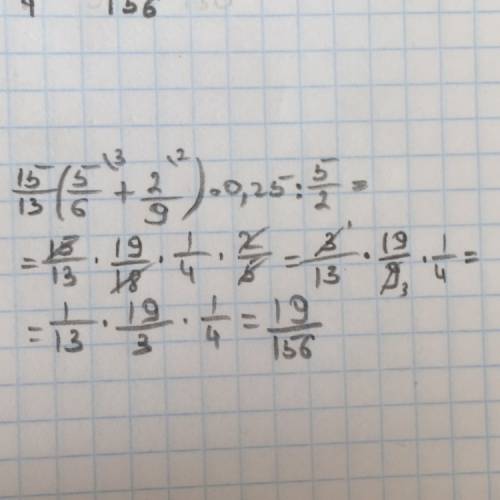 156
15/13 (5/6 \3 + 2/9 \2) · 0,25 : 5/2 =
= 15/13 · 19/18 · 1/4 · 2/5 = 3 1/13 · 19/9 3 · 1/4 =
= 1/13 · 19/3 · 1/4 = 19/156